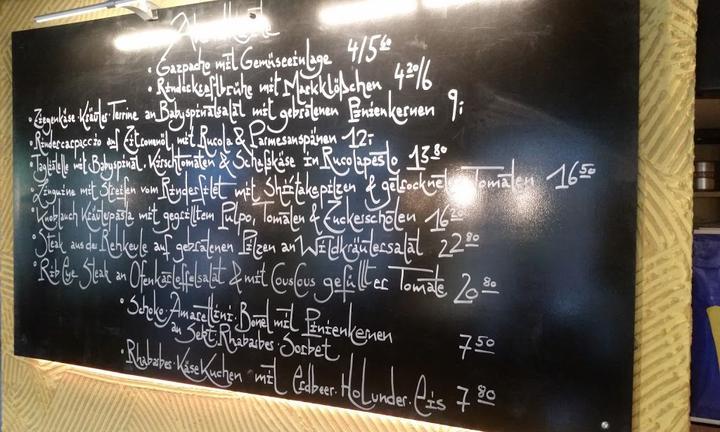 • Gazpacho mit Gemüseeinlage 4/5⁶⁰
• Rinderkraftbrühe mit Markklößchen 4²⁰/6
• Ziegenkäse-Kräuter Terrine an Babyspinatsalat mit gebratenen Pinienkernen 9,-
• Rindercarpaccio auf Zitronenöl mit Rucola & Parmesanspänen 12,-
• Tagliatelle mit Babyspinat, Kirschtomaten & Schafskäse in Rucolapesto 13⁸⁰
• Linguine mit Streifen vom Rinderfilet mit Shiitakepilzen & getrockneten Tomaten 16⁵⁰
• Knoblauch Kräuterpasta mit gegrilltem Pulpo, Tomaten & Zuckerschoten 16
• Steak aus der Rehkeule auf gebratenen Pilzen an Wildkräutersalat 22⁸⁰
• Rib Eye Steak an Ofenkartoffelsalat & mit CousCous gefüllter Tomate 20⁸⁰
• Schoko-Amarettini-Bonet mit Pinienkernen
an Sekt-Rhabarber-Sorbet 7⁵⁰
• Rhabarber-KäseKuchen mit Erdbeer-Holunder-Eis 7⁸⁰